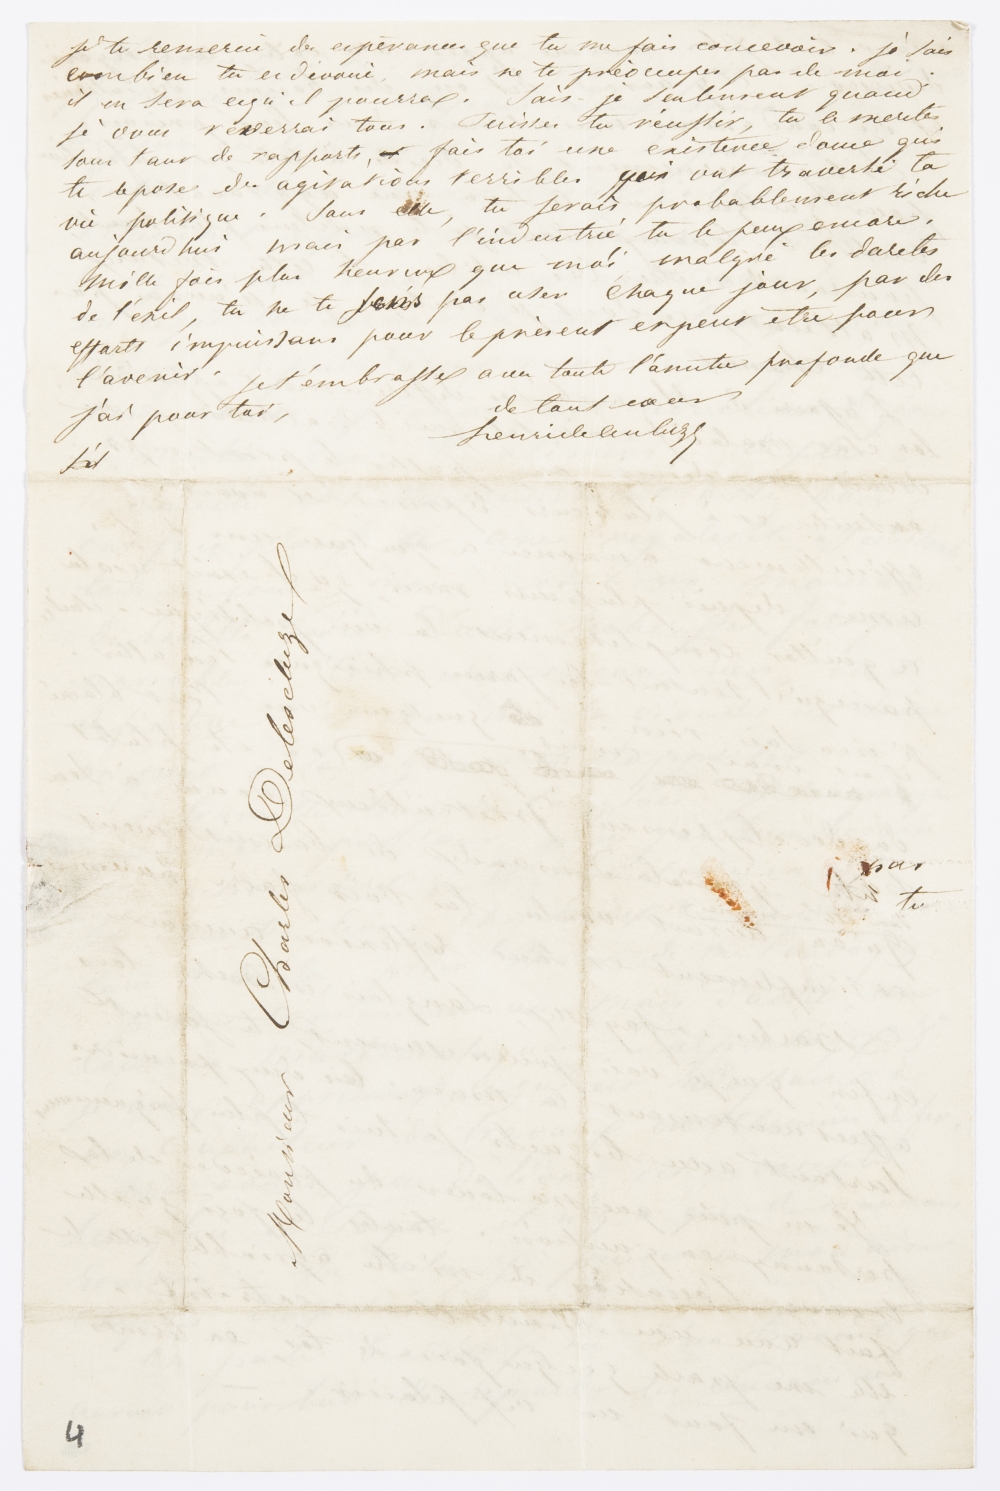 je te remercie des espérances que tu me fais concevoir. je sais
combien tu es dévoué, mais ne te préoccupes pas de moi.
il en sera ce qu'il pourra. Sais-je seulement quand
je vous reverrai tous. Puisses tu réussir, tu le merites
sous tant de rapports, fais toi une existence douce qui
te repose des agitations terribles qui ont traversé ta
vie politique. Sans elle, tu serais probablement riche
aujourdhui mais par l'industrie tu le peux encore.
Mille fois plus heureux que moi malgré les duretés
de l'exil, tu ne te sens pas user chaque jour, par des
efforts impuissans pour le présent et peut etre pour
l'avenir. je t'embrasse avec toute l'amitié profonde que
j'ai pour toi,
de tout coeur
henri delescluze
Monsieur Charles Delescluze
par
tu
4